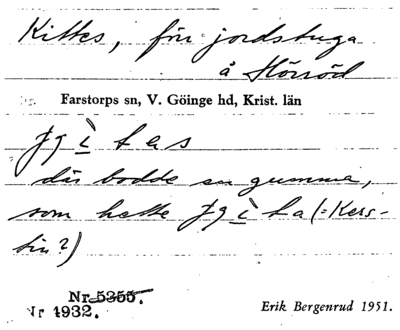 Kittes, förr jordstuga
å Hörröd
Farstorps sn, V. Göinge hd, Krist. län
ɟɡ ì t a s
där bodde en gumma,
som hette ɟɡ ì t a (= Kers-
tin?)
Nr 5355.
Nr 4932.
Erik Bergenrud 1951.